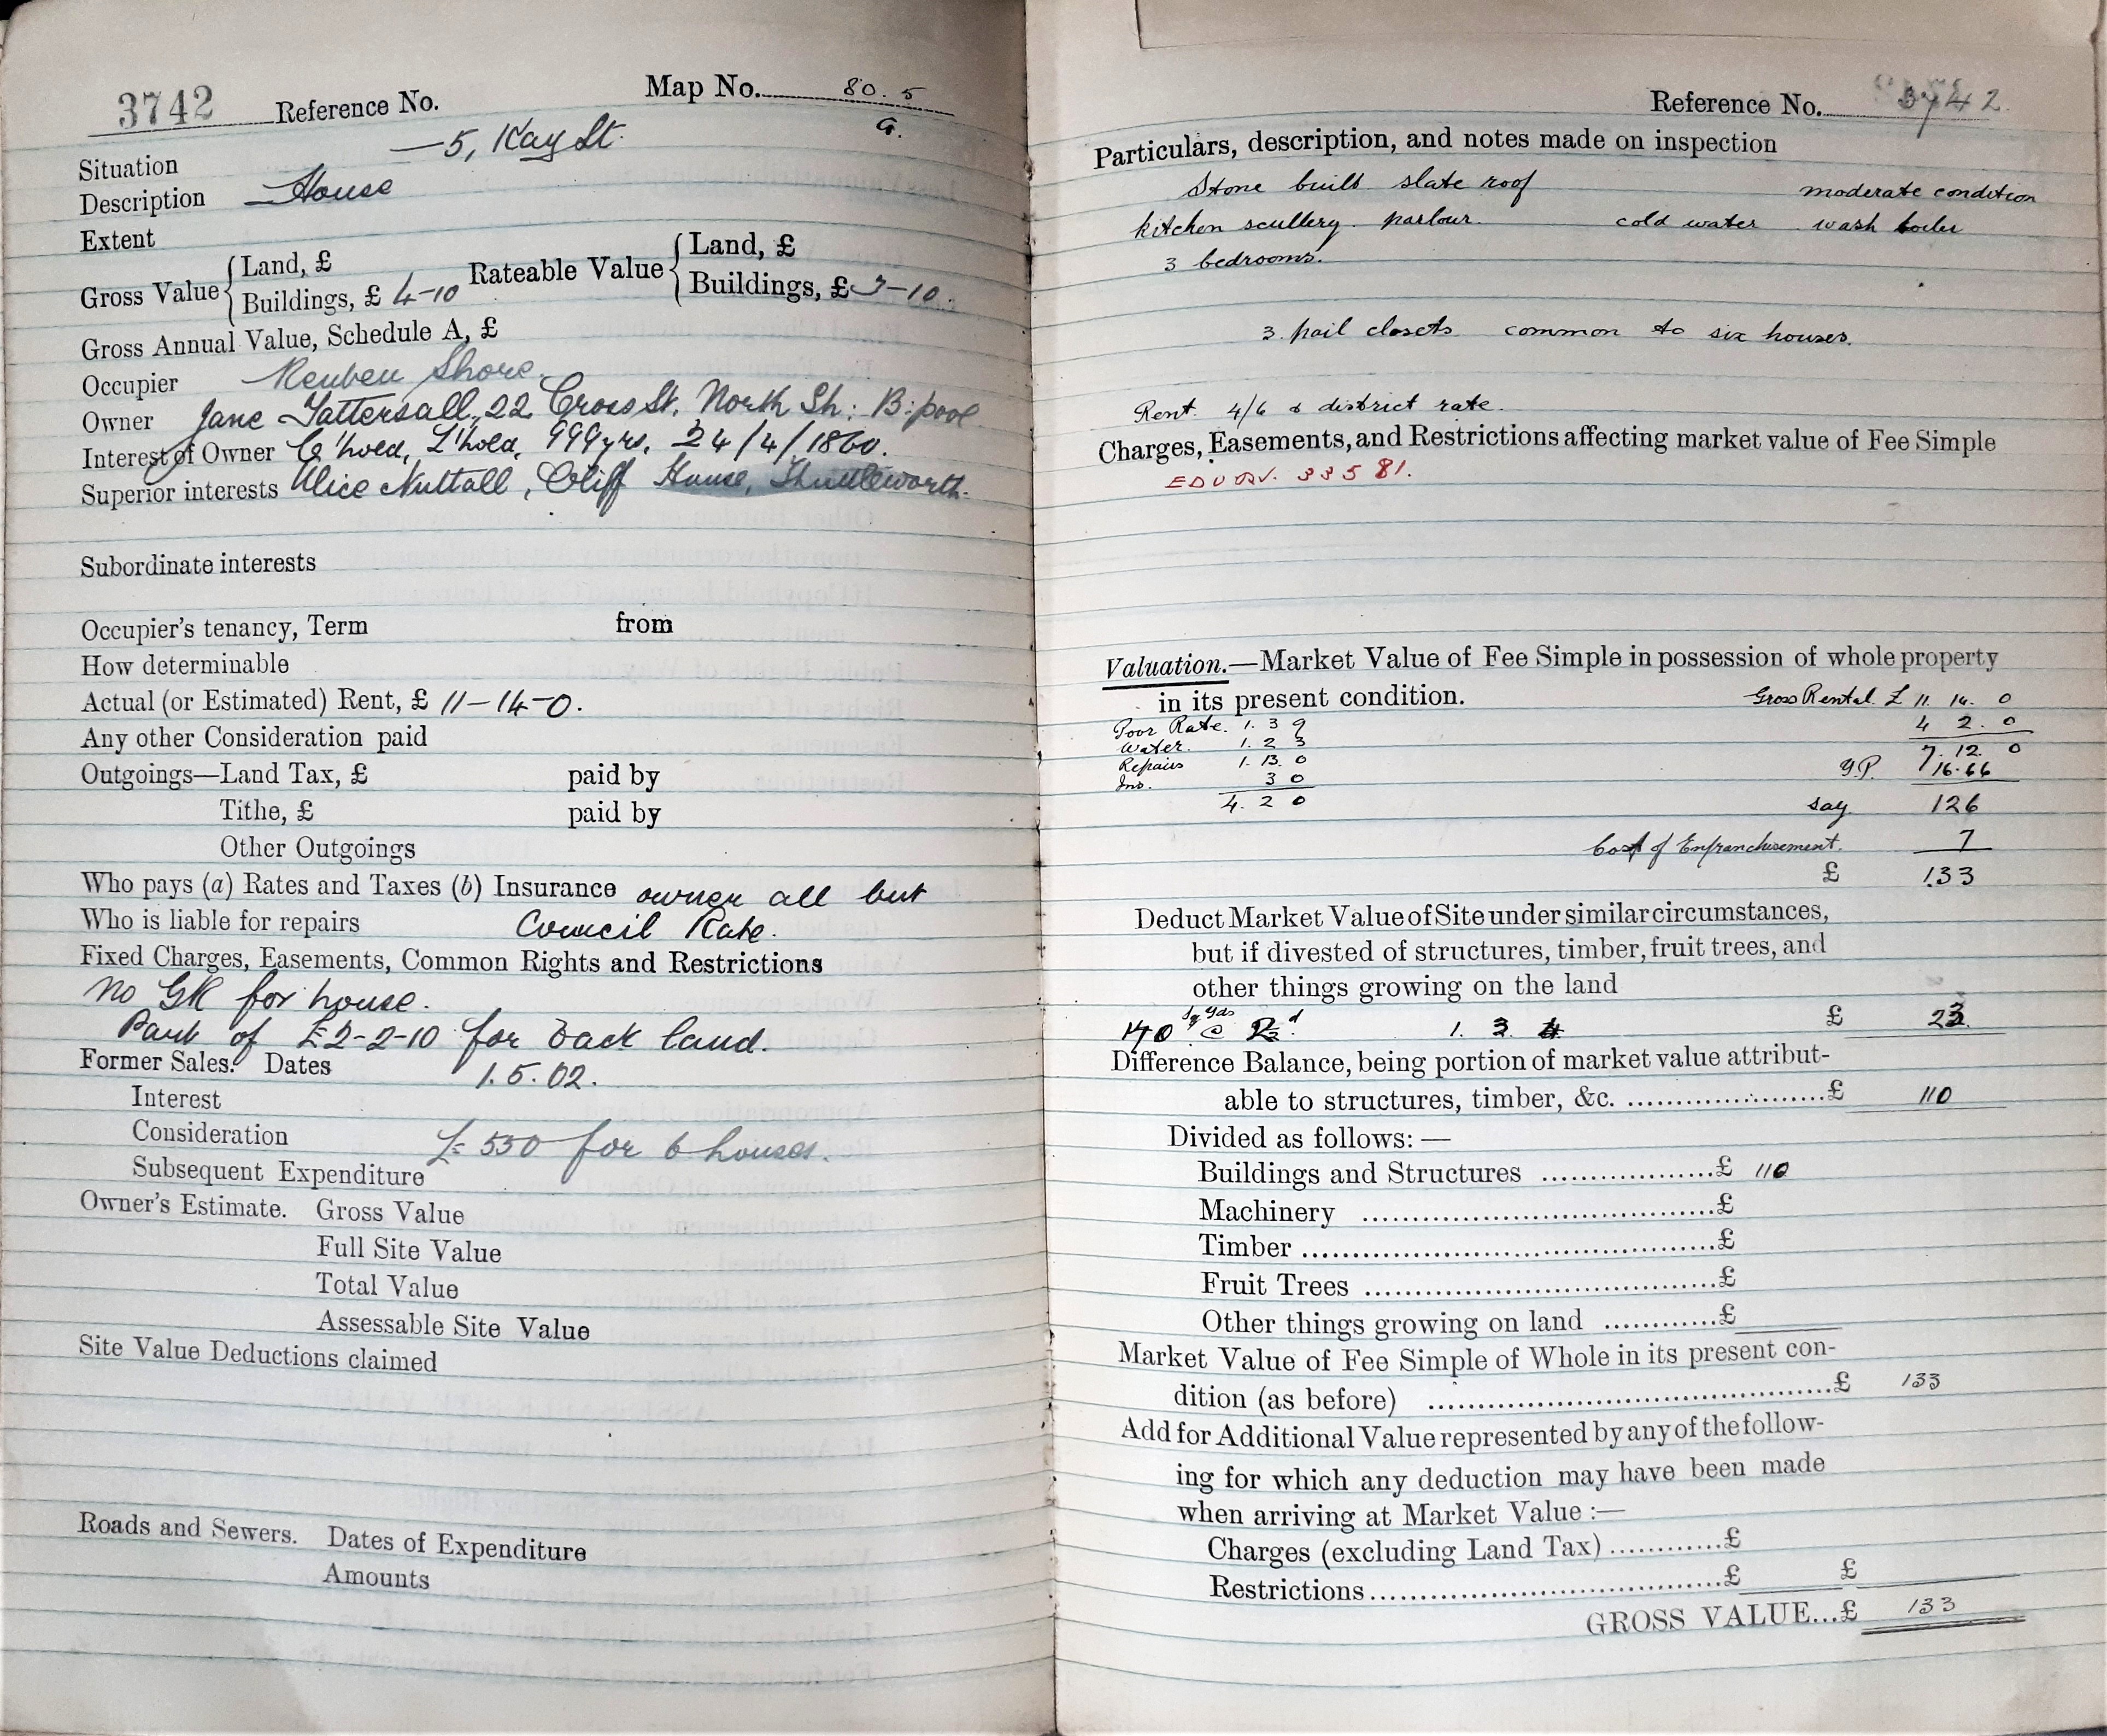 3742 Reference No. Map No. 80. 5
a.
Situation — 5, Kay St.
Description — House
Extent
Gross Value { Land, £
Buildings, £ 4-10
Rateable Value { Land, £
Buildings, £ 3-10.
Gross Annual Value, Schedule A, £
Occupier Reuben Shore.
Owner Jane Tattersall, 22 Cross St. North Sh: B:pool
Interest of Owner C'hold, L'hold, 999 yrs. 24/4/1860.
Superior interests Alice Nuttall, Cliff House, Shuttleworth.
Subordinate interests
Occupier's tenancy, Term from
How determinable
Actual (or Estimated) Rent, £ 11-14-0.
Any other Consideration paid
Outgoings—Land Tax, £ paid by
Tithe, £ paid by
Other Outgoings
Who pays (a) Rates and Taxes (b) Insurance owner all but
Who is liable for repairs Council Rate.
Fixed Charges, Easements, Common Rights and Restrictions
no GR for house.
Part of £2-2-10 for back land.
Former Sales. Dates 1.5.02.
Interest
Consideration £550 for 6 houses.
Subsequent Expenditure
Owner's Estimate. Gross Value
Full Site Value
Total Value
Assessable Site Value
Site Value Deductions claimed
Roads and Sewers. Dates of Expenditure
Amounts
Reference No. 3742.
Particulars, description, and notes made on inspection
Stone built slate roof moderate condition
kitchen scullery. parlour. cold water. wash boiler
3 bedrooms.
3. pail closets common to six houses.
Rent. 4/6 & district rate.
Charges, Easements, and Restrictions affecting market value of Fee Simple
33581.
Valuation.—Market Value of Fee Simple in possession of whole property
in its present condition. Gross Rental £ 11. 14. 0
Poor Rate. 1. 3 9 4 2. 0
Water. 1. 2 3 7. 12. 0
Repairs 1. 13. 0 Y.P. 16.66
Ins. 3 0
4. 2 0 say 126
Cost of Enfranchisement. 7
£ 133
Deduct Market Value of Site under similar circumstances,
but if divested of structures, timber, fruit trees, and
other things growing on the land
140 Sq yds @ 2d. 1. 3. 4 £ 23.
Difference Balance, being portion of market value attribut-
able to structures, timber, &c. £ 110
Divided as follows:—
Buildings and Structures £ 110
Machinery £
Timber £
Fruit Trees £
Other things growing on land £
Market Value of Fee Simple of Whole in its present con-
dition (as before) £ 133
Add for Additional Value represented by any of the follow-
ing for which any deduction may have been made
when arriving at Market Value :—
Charges (excluding Land Tax) £
Restrictions £ £
GROSS VALUE...£ 133